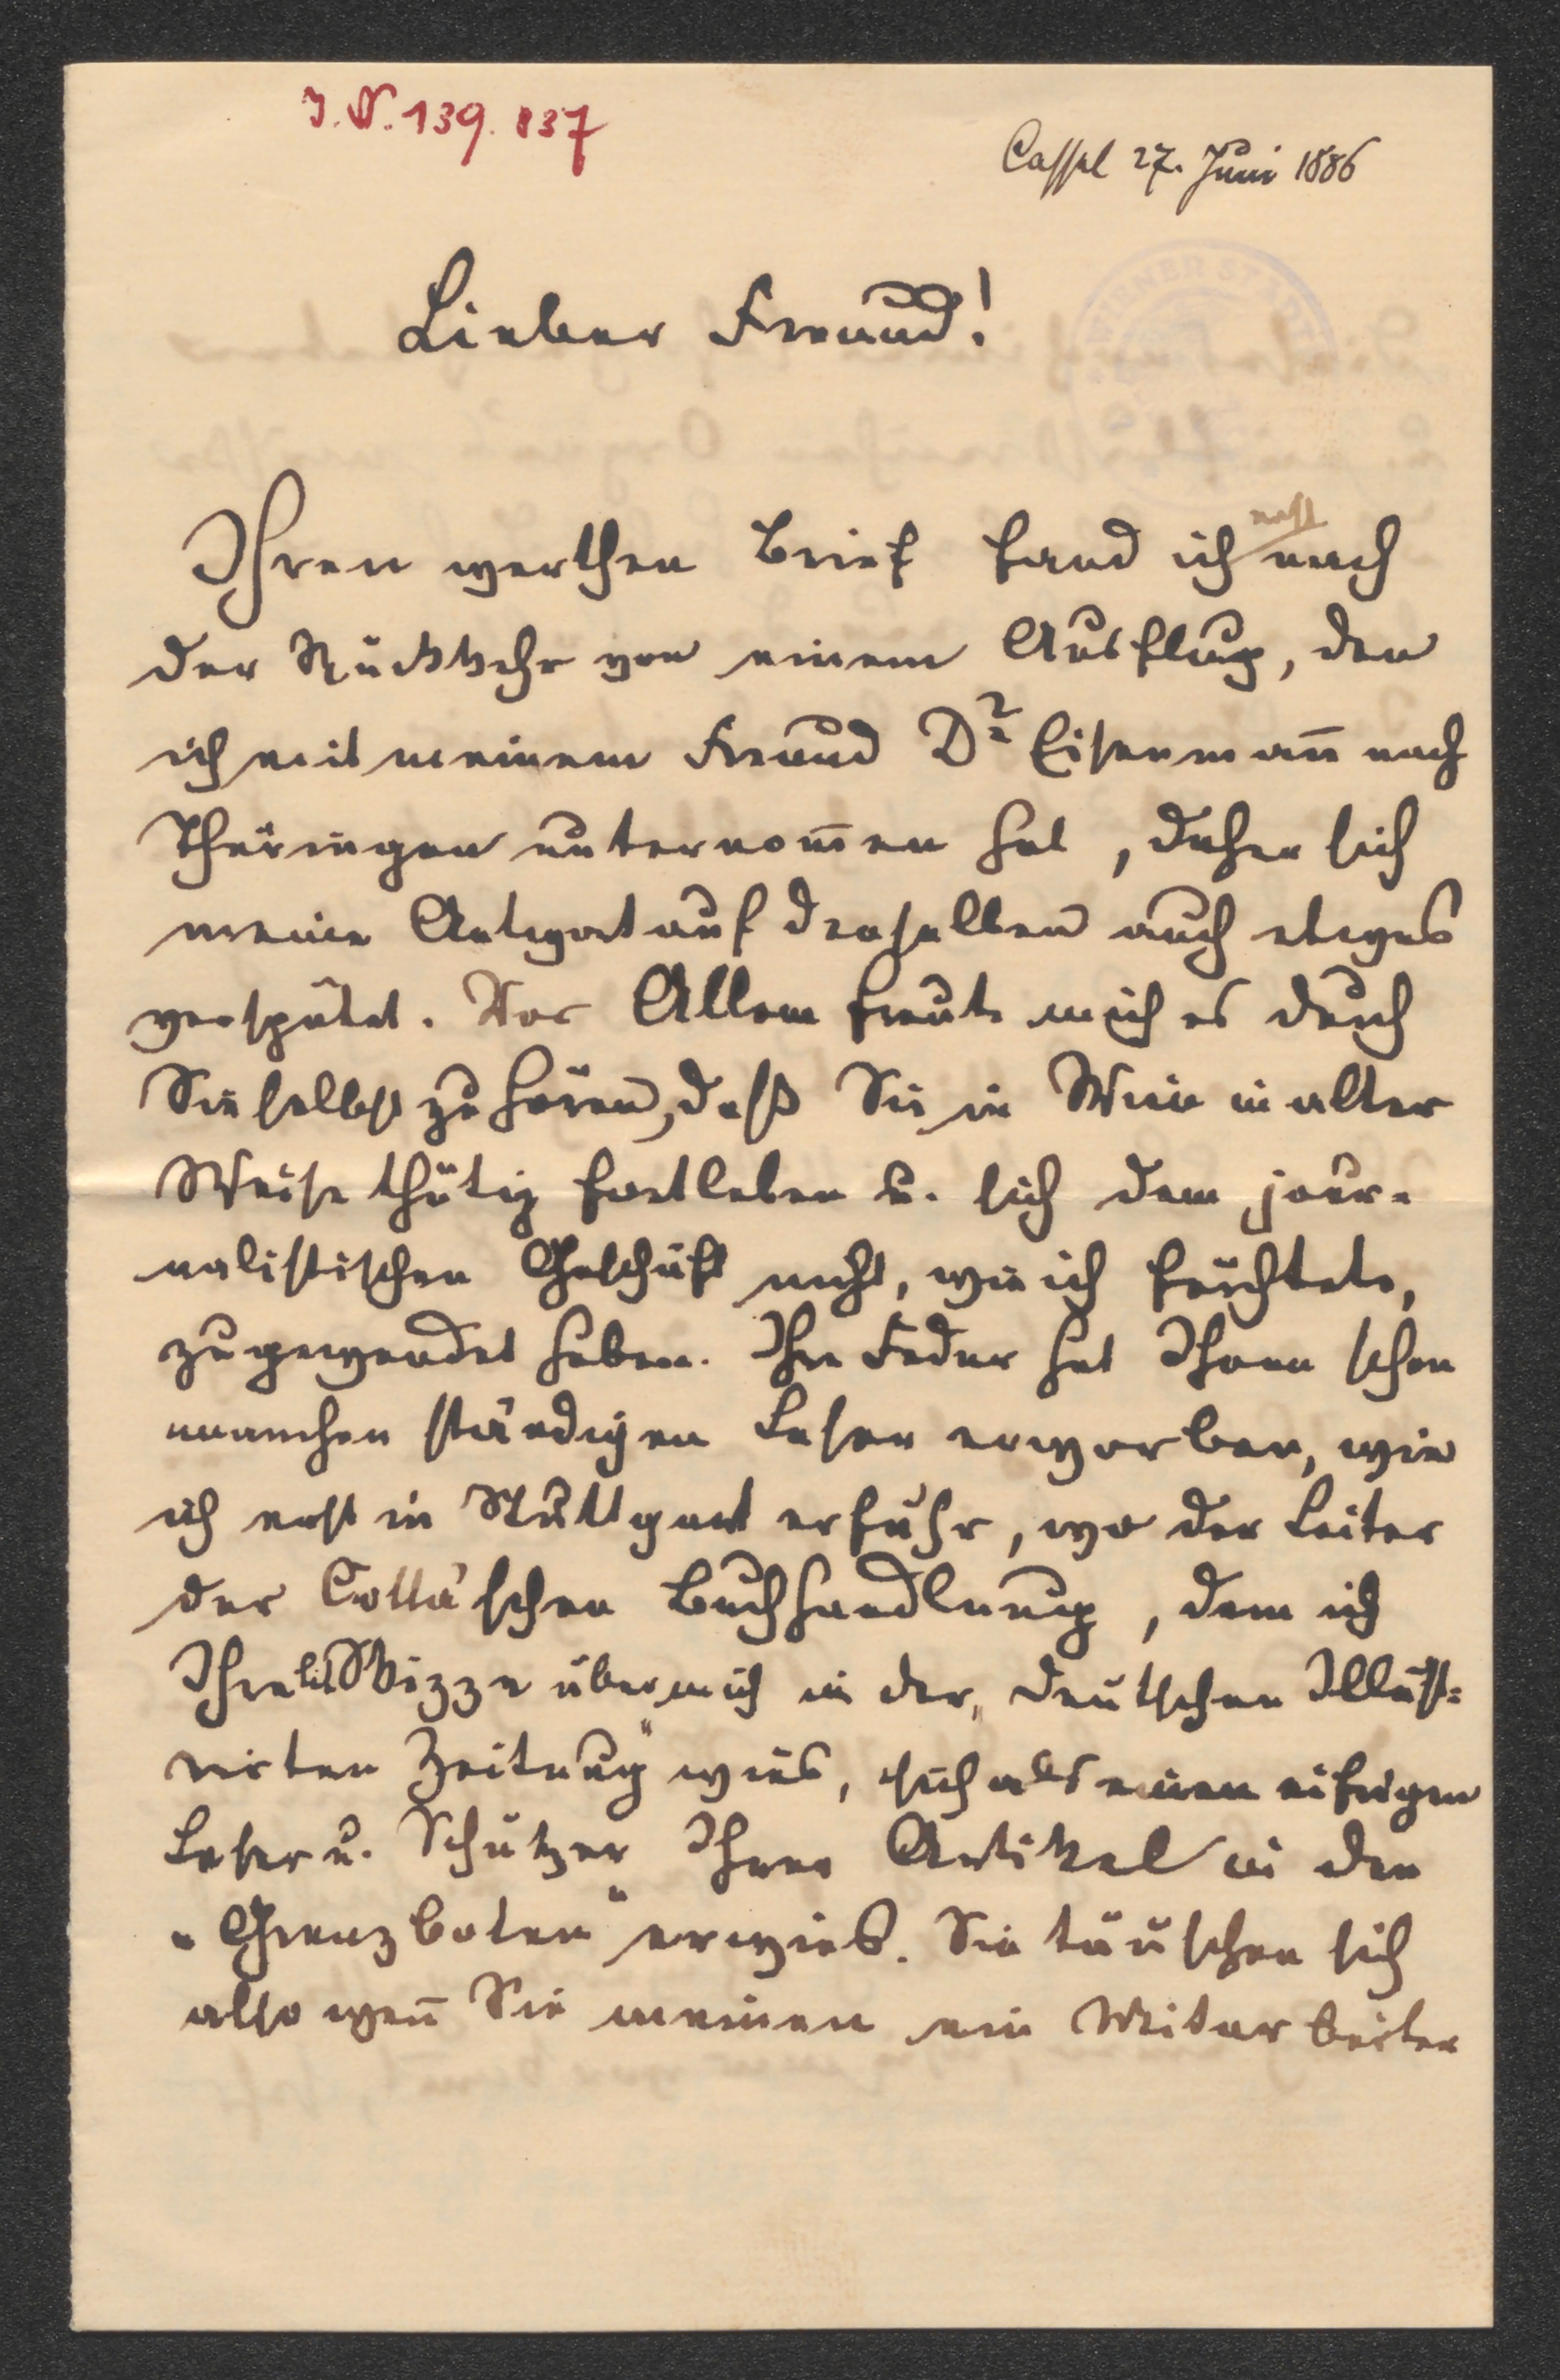 I.N. 139.837
Cassel 27. Juni 1886
WIENER STADT
Lieber Freund!
erst
Ihren werthen Brief fand ich nach
der Rückkehr von einem Ausflug, den
ich mit meinem Freund Dr Eisenman̄ nach
Thüringen unternom̄en hat, daher sich
meine Antwort auf denselben auch etwas
verspätet. Vor Allem freute mich es durch
Sie selbst zu hören, daß Sie in Wien in alter
Weise thätig fortleben u. sich dem jour-
nalistischen Geschäft nicht, wie ich fürchtete,
zugewendet haben. Ihre Feder hat Ihnen schon
manchen ständigen Leser erworben, wie
ich erst in Stuttgart erfuhr, wo der Leiter
der Cotta'schen Buchhandlung, dem ich
Ihre lit Skizze über mich in der „deutschen Illust-
rirten Zeitung" wies, sich als einen eifrigen
Leser u. Schützer Ihrer Artikel in den
„Grenzboten" erwies. Sie täuschen sich
also wen̄ Sie meinen ein Mitarbeiter